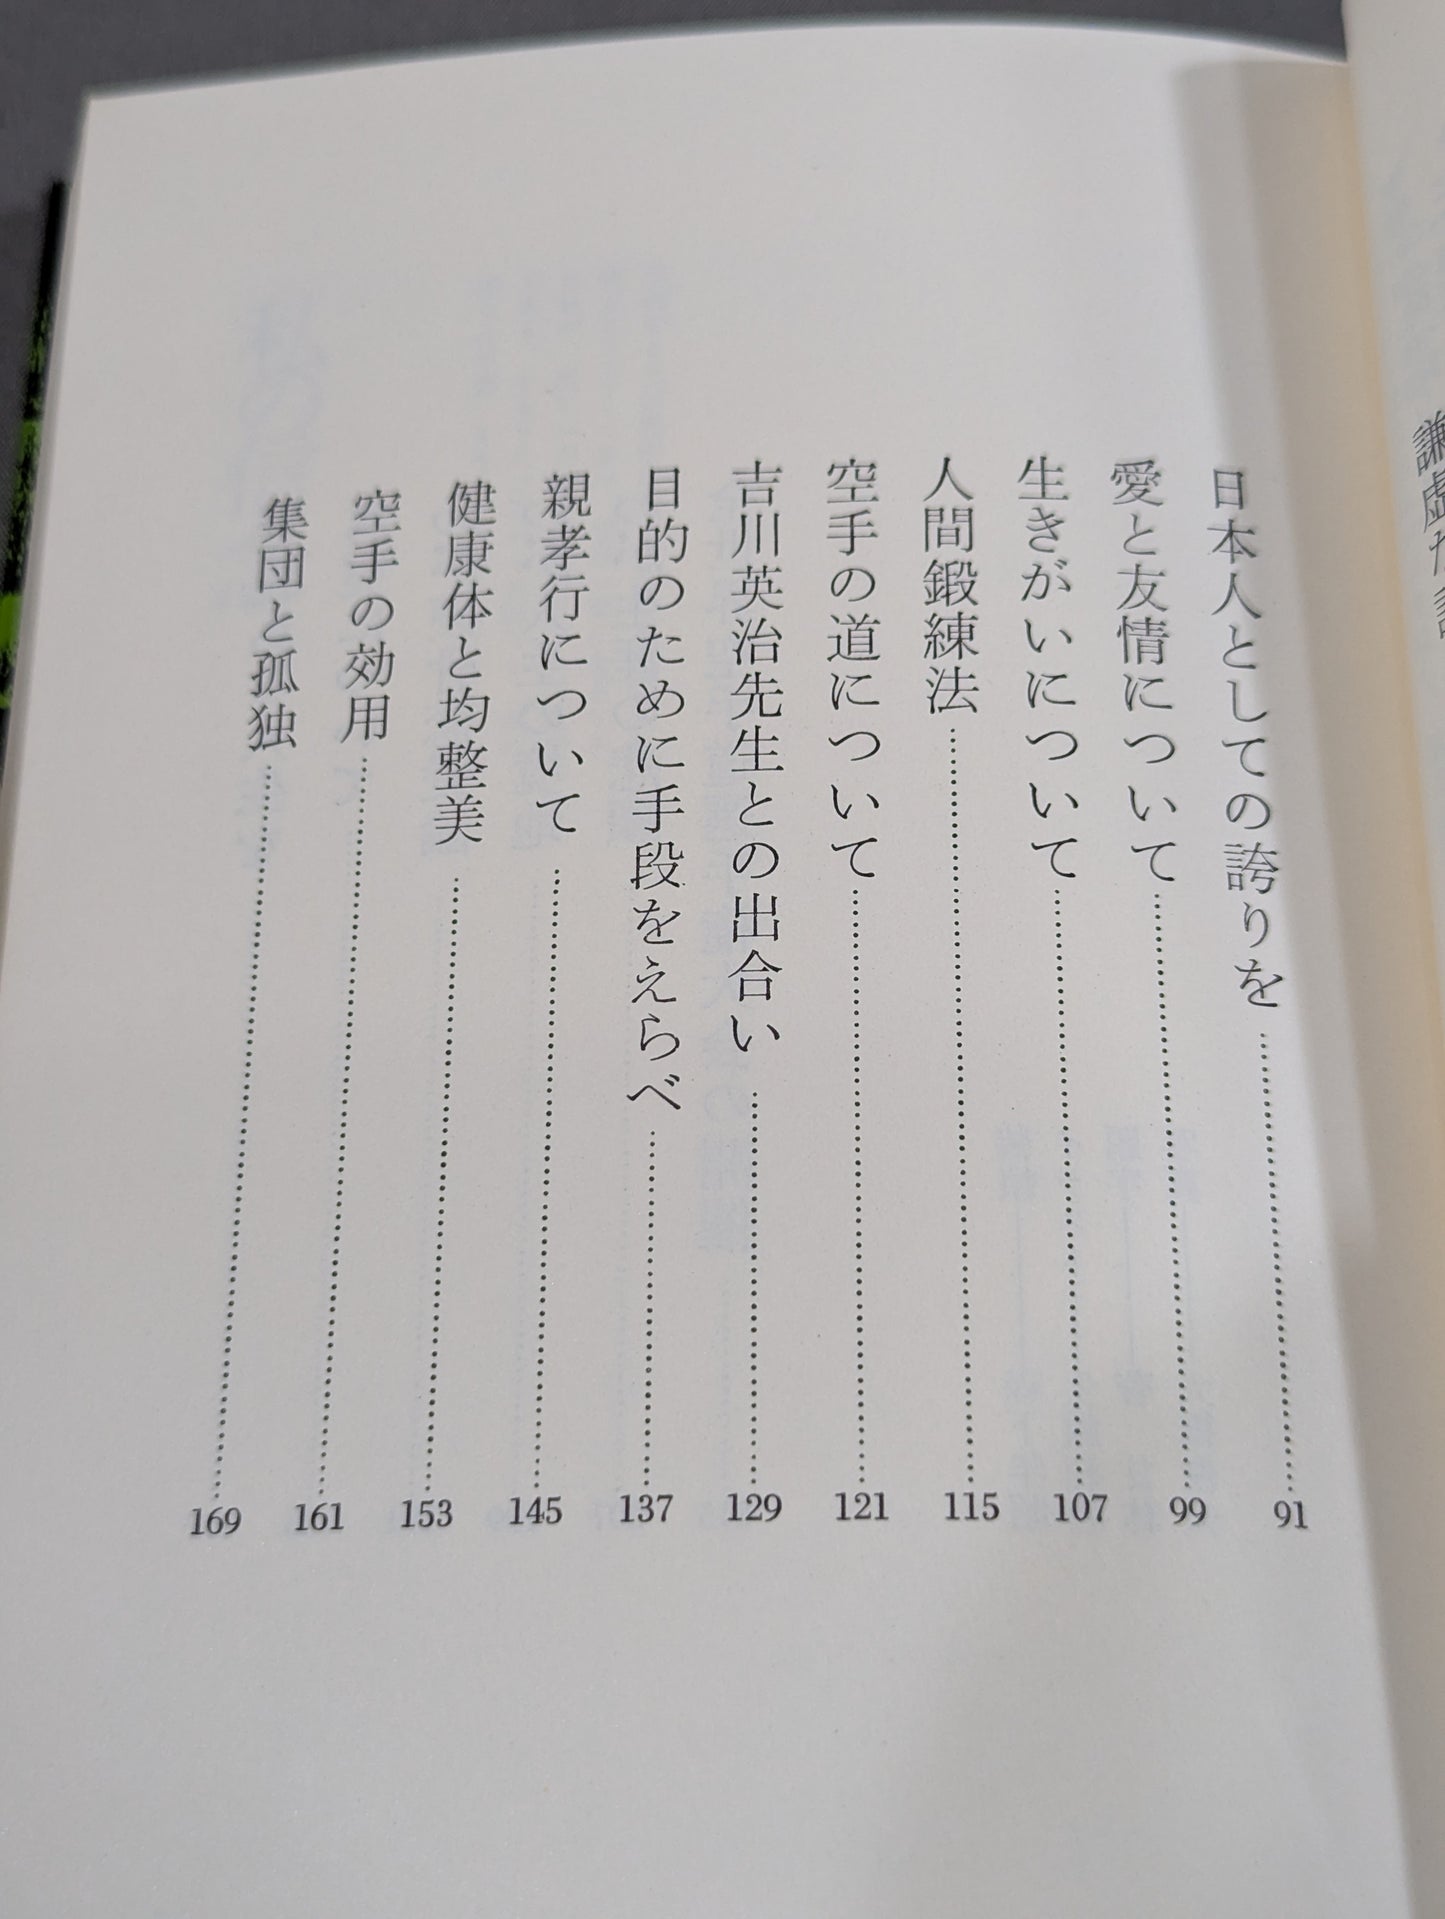 日本人としての誇りを……91
愛と友情について……99
生きがいについて……107
人間鍛練法……115
空手の道について……121
吉川英治先生との出合い……129
目的のために手段をえらべ……137
親孝行について……145
健康体と均整美……153
空手の効用……161
集団と孤独……169